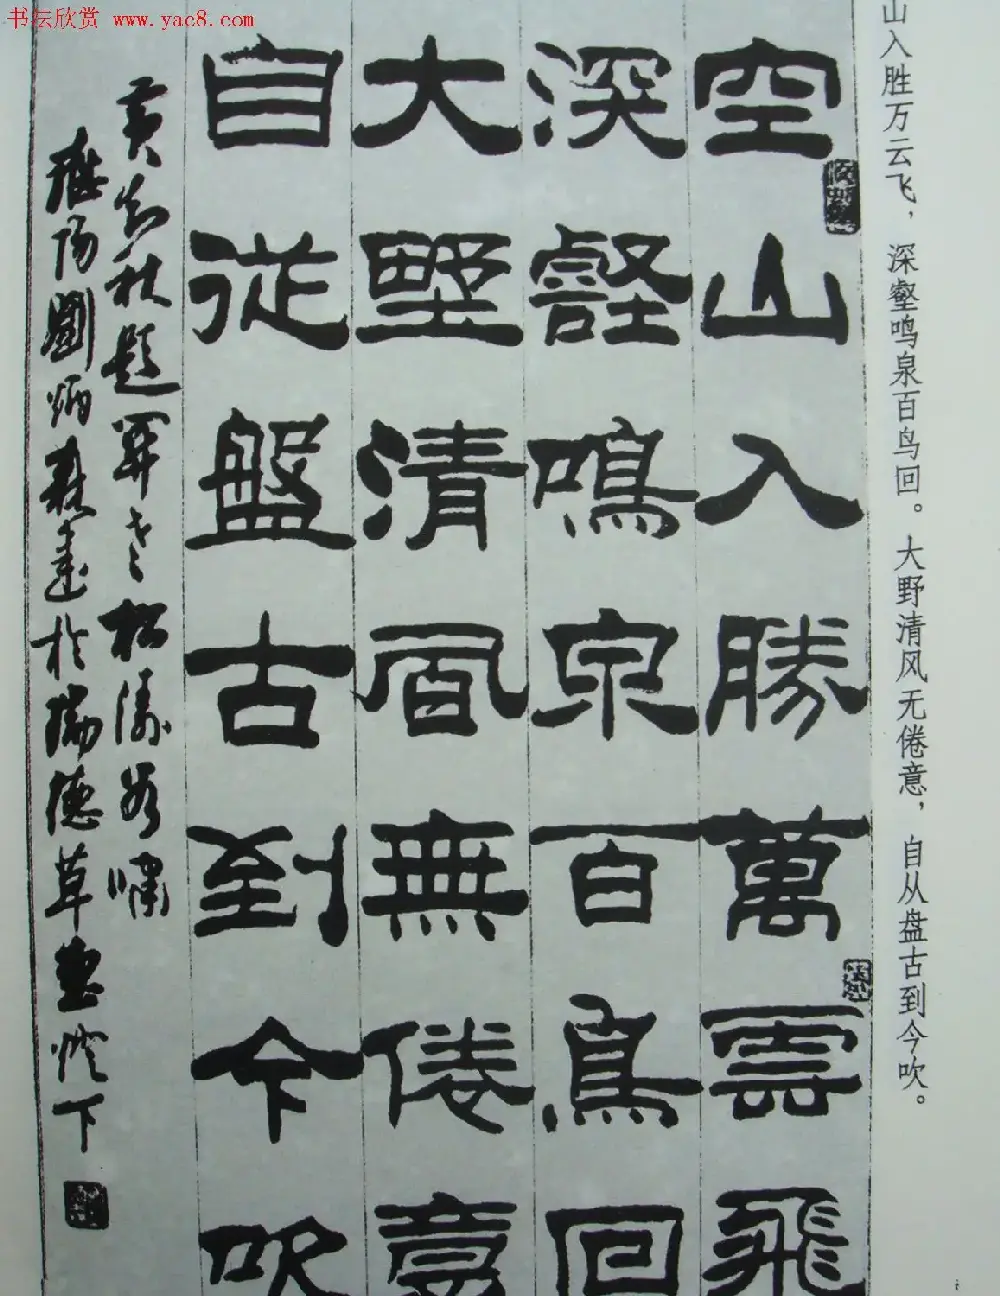 书坛欣赏 www.yac8.com
山入胜万云飞，深壑鸣泉百鸟回。大野清风无倦意，自从盘古到今吹。
空山入勝萬雲飛
深壑鳴泉百鳥回
大野清風無倦意
自從盤古到今吹
黃 秋題 老松濤 嘯
陽劉炳森 於 德草堂燈下